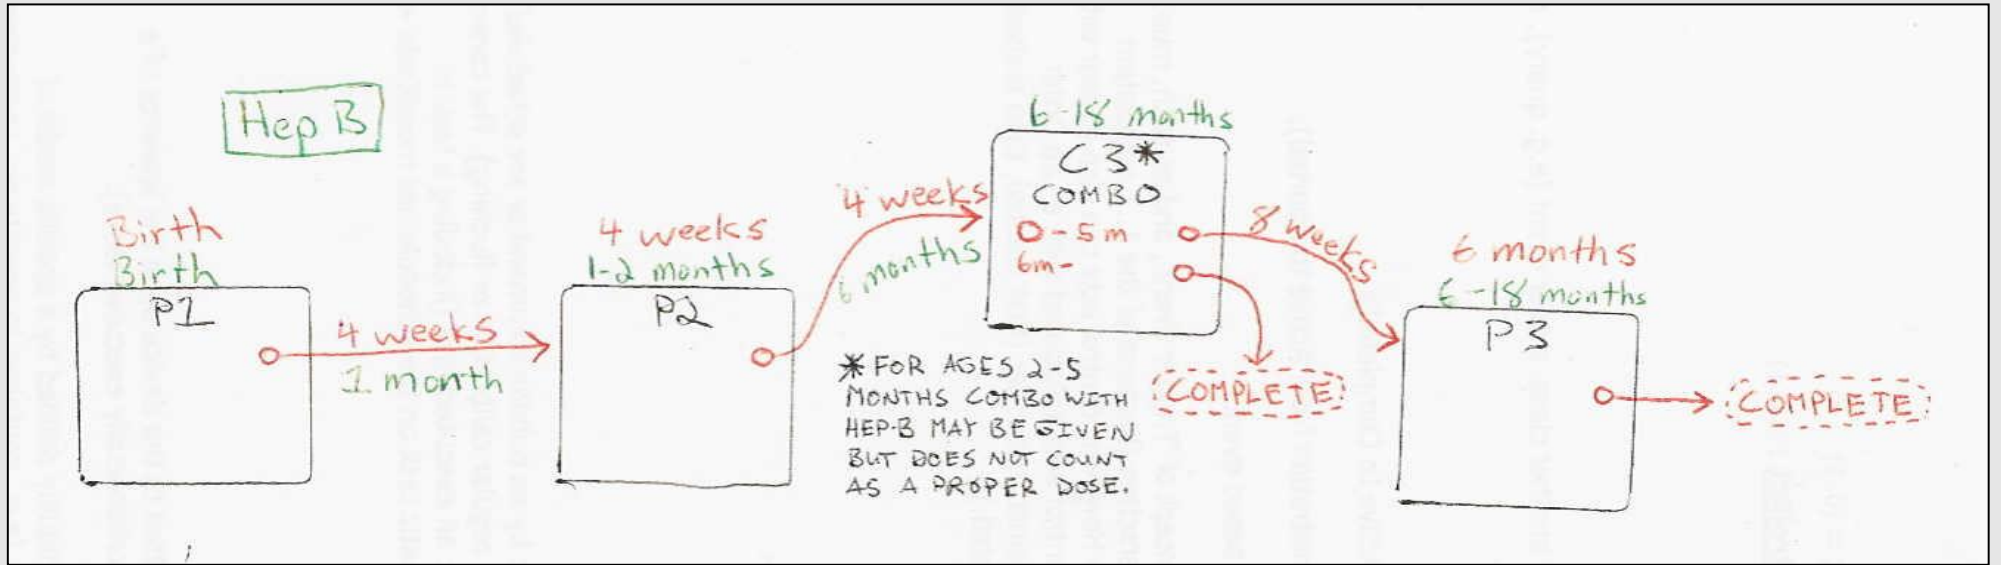 Hep B
Birth
Birth
P1
4 weeks
1 month
4 weeks
1-2 months
P2
4 weeks
6 months
6-18 months
C3*
COMBO
0-5m
6m-
8 weeks
COMPLETE
* FOR AGES 2-5
MONTHS COMBO WITH
HEP-B MAY BE GIVEN
BUT DOES NOT COUNT
AS A PROPER DOSE.
6 months
6-18 months
P3
COMPLETE